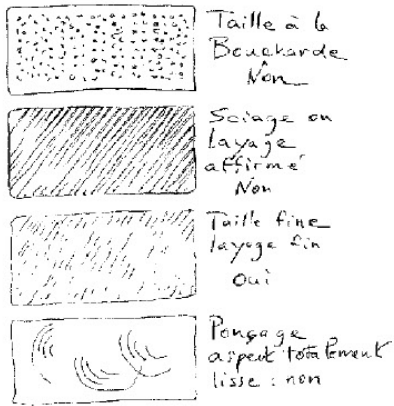 Taille à la
Boucharde
Non
Sciage ou
layage
affirmé
Non
Taille fine
layage fin
oui
Ponçage
aspect totalement
lisse : non